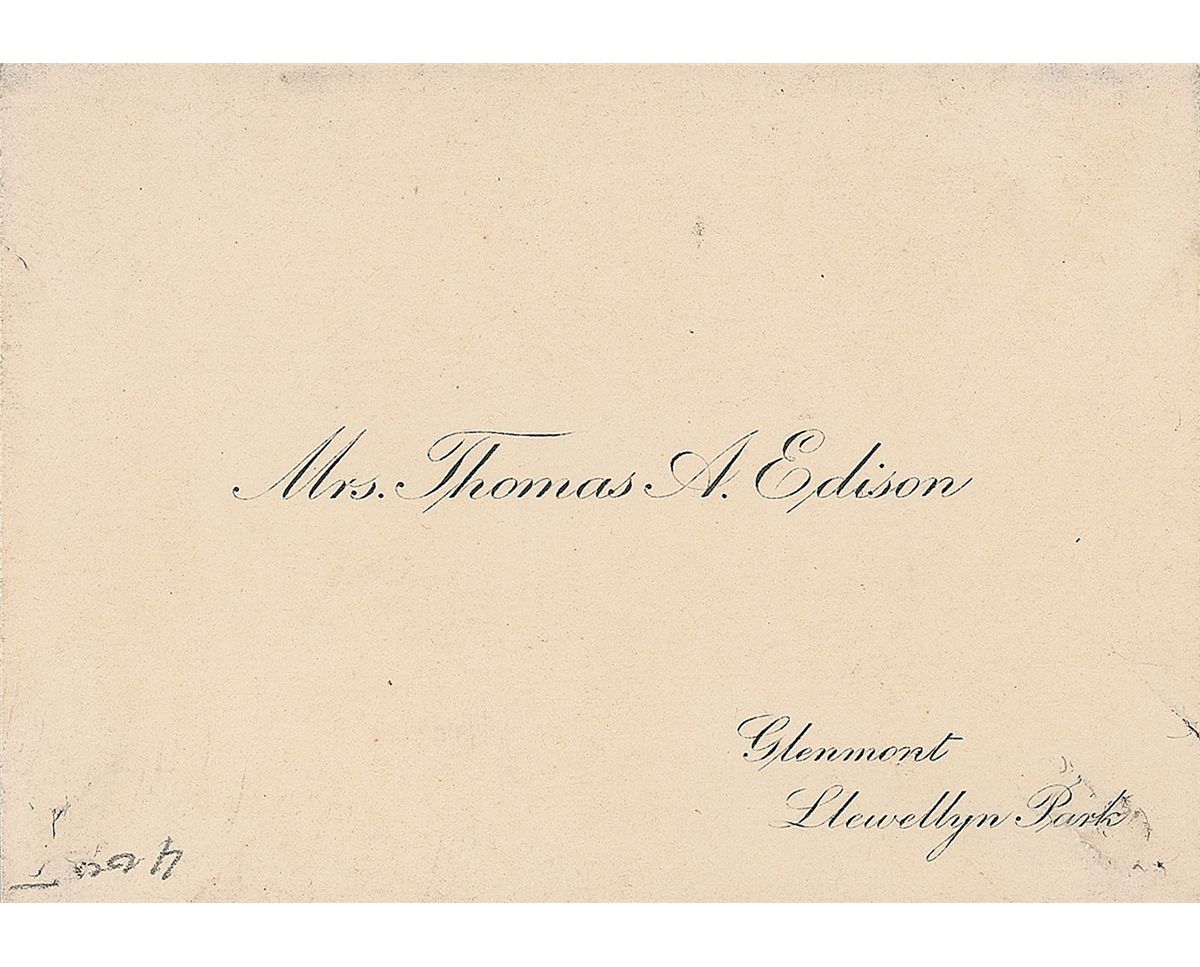 Mrs. Thomas A. Edison
Glenmont
Llewellyn Park